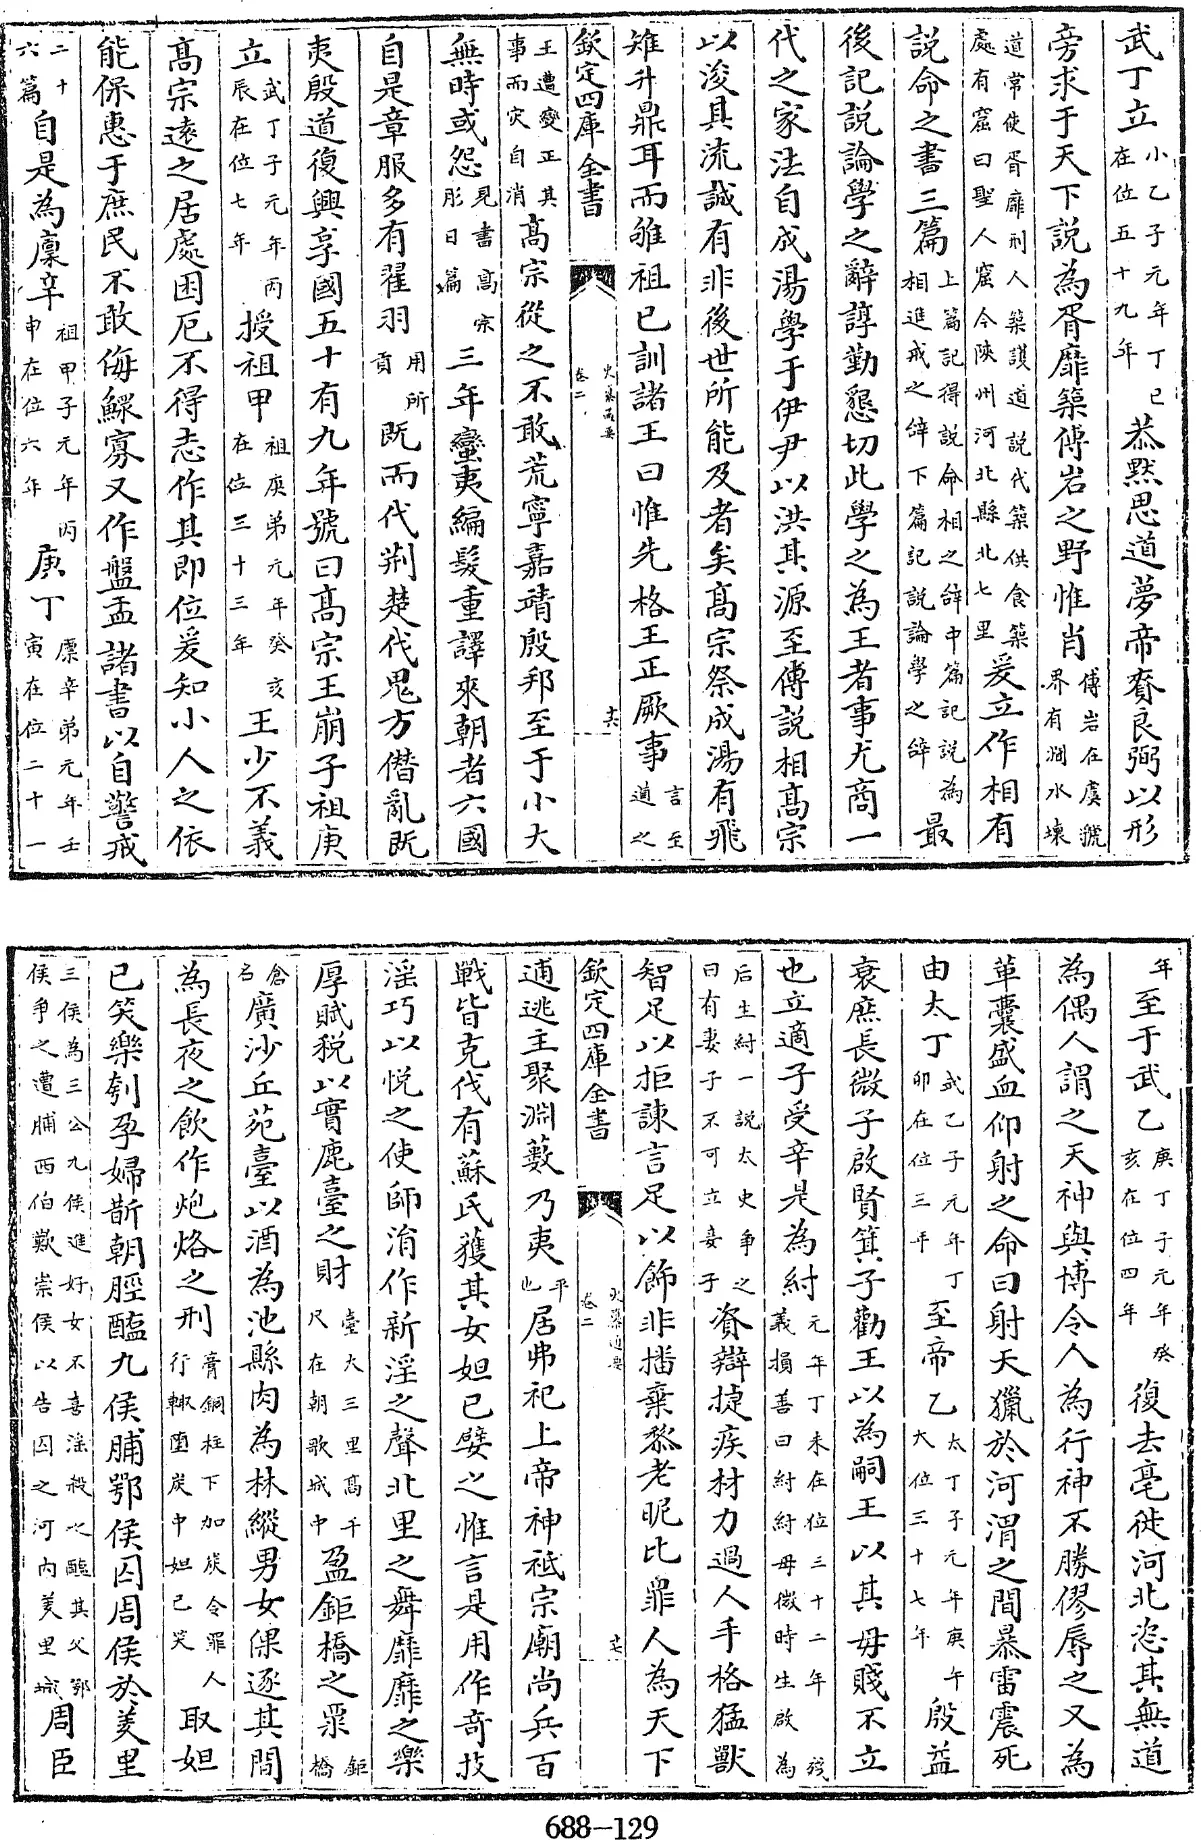 武丁立小乙子元年丁巳在位五十九年恭默思道夢帝賚良弼以形
旁求于天下説為胥靡築傅岩之野惟肖傅岩在虞虢界有澗水壊
道常使胥靡刑人築護道説代築供食築處有窟曰聖人窟今陜州河北縣北七里爰立作相有
説命之書三篇上篇記得説命相之辭中篇記説為相進戒之辭下篇記説論學之辭最
後記説論學之辭諄勤懇切此學之為王者事尤商一
代之家法自成湯學于伊尹以洪其源至傅説相高宗
以浚其流誠有非後世所能及者矣高宗祭成湯有飛
雉升鼎耳而雊祖已訓諸王曰惟先格王正厥事言至道之
欽定四庫全書
卷二
十六
王遭變正其事而灾自消高宗從之不敢荒寧嘉靖殷邦至于小大
無時或怨見書高宗肜日篇三年蠻夷編髮重譯來朝者六國
自是章服多有翟羽用所貢既而代荆楚代鬼方僭亂既
夷殷道復興享國五十有九年號曰高宗王崩子祖庚
立武丁子元年丙辰在位七年授祖甲祖庚弟元年癸亥在位三十三年王少不義
高宗逺之居處困厄不得志作其即位爰知小人之依
能保惠于庶民不敢侮鰥寡又作盤盂諸書以自警戒
二十六篇自是為廩辛祖甲子元年丙申在位六年庚丁廪辛弟元年壬寅在位二十一
年至于武乙庚丁子元年癸亥在位四年復去亳徙河北恣其無道
為偶人謂之天神與博令人為行神不勝僇辱之又為
革囊盛血仰射之命曰射天獵於河渭之間暴雷震死
由太丁武乙子元年丁卯在位三年至帝乙太丁子元年庚午大位三十七年殷益
衰庶長微子啟賢箕子勸王以為嗣王以其母賤不立
也立適子受辛是為紂元年丁未在位三十二年殘義損善曰紂紂母微時生啟為
后生紂一説太史争之曰有妻子不可立妾子資辯捷疾材力過人手格猛獸
智足以拒諫言足以飾非播棄黎老昵比罪人為天下
欽定四庫全書
卷二
十七
逋逃主聚淵藪乃夷平也居弗祀上帝神祗宗廟尚兵百
戰皆克伐有蘇氏獲其女妲已嬖之惟言是用作奇技
淫巧以悦之使師涓作新淫之聲北里之舞靡靡之樂
厚賦税以實鹿臺之財臺大三里高千尺在朝歌城中盈鉅橋之粟鉅橋
倉名廣沙丘苑臺以酒為池縣肉為林縱男女倮逐其間
為長夜之飲作炮烙之刑膏銅柱下加炭令罪人行輙墮炭中妲已笑取妲
已笑樂刳孕婦斮朝脛醢九侯脯鄂侯囚周侯於羑里
三侯為三公九侯進好女不喜淫殺之醢其父鄂侯争之遭脯西伯歎崇侯以告囚之河内羑里城周臣
688-129